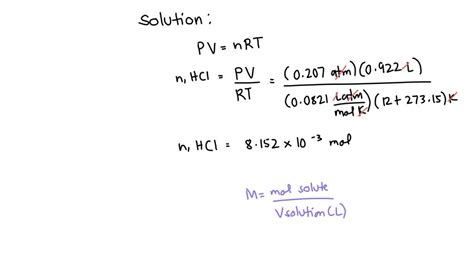 Solution:
PV = nRT
n, HCl = PV/RT = (0.207 atm)(0.922 L)/(0.0821 Latm/molK)(12+273.15)K
n, HCl = 8.152 x 10⁻³ mol
M = mol solute/Vsolution(L)